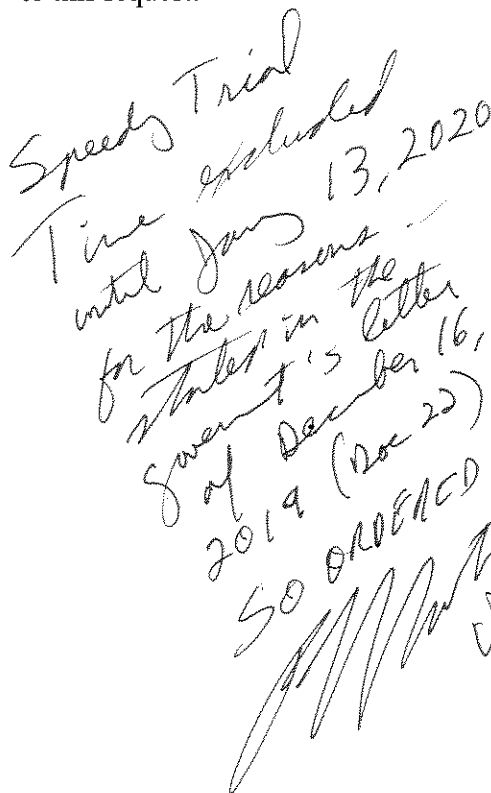 to this request.
Speedy Trial
Time excluded
until Jany 13, 2020
for the reasons
stated in the
government's letter
of December 16,
2019 (Doc 22)
SO ORDERED